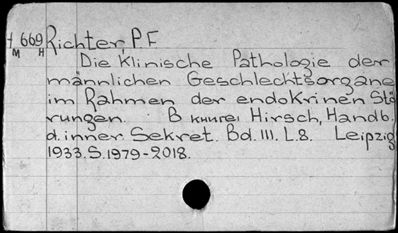 1 669 Richter, P. F.
M H
Die Klinische Pathologie der
männlichen Geschlechtsorgane
im Rahmen der endokrinen Stö
rungen. В книгеi Hirsch, Handb.
d. inner. Sekret. Bd. III. L. 8. Leipzig
1933. S. 1979-2018.